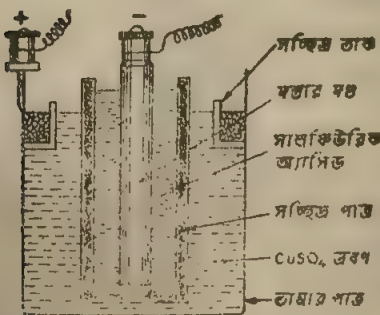 + −
সচ্ছিদ্র তাক
দস্তার দণ্ড
সালফিউরিক
অ্যাসিড
সচ্ছিদ্র পাত্র
CuSO₄ দ্রবণ
তামার পাত্র